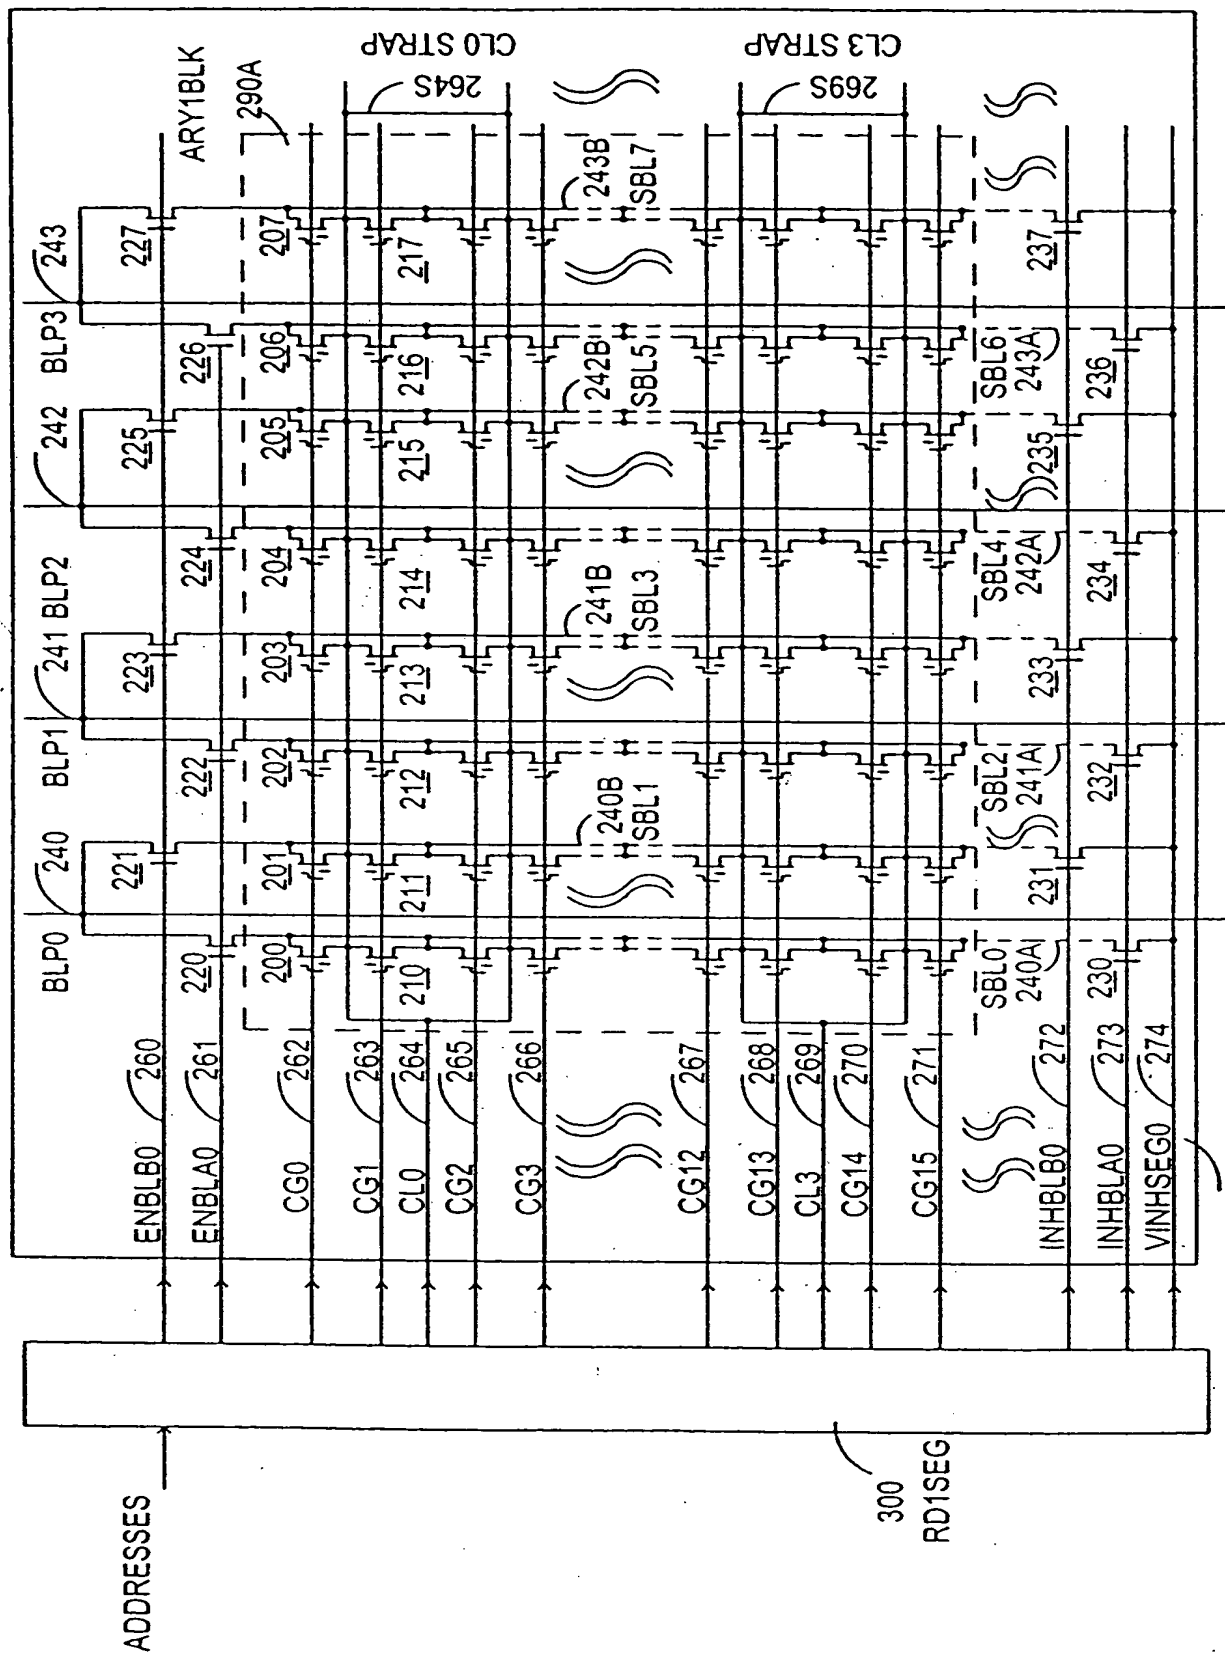 ADDRESSES
300
RD1SEG
ENBLB0 260
ENBLA0 261
CG0 262
CG1 263
CL0 264
CG2 265
CG3 266
CG12 267
CG13 268
CL3 269
CG14 270
CG15 271
INHBLB0 272
INHBLA0 273
VINHSEG0 274
BLP0 240
BLP1 241
BLP2 242
BLP3 243
220
221
222
223
224
225
226
227
ARY1BLK
290A
200
201
202
203
204
205
206
207
210
211
212
213
214
215
216
217
264S
CL0 STRAP
240B
SBL1
241B
SBL3
242B
SBL5
243B
SBL7
269S
CL3 STRAP
SBL0
240A
SBL2
241A
SBL4
242A
SBL6
243A
230
231
232
233
234
235
236
237